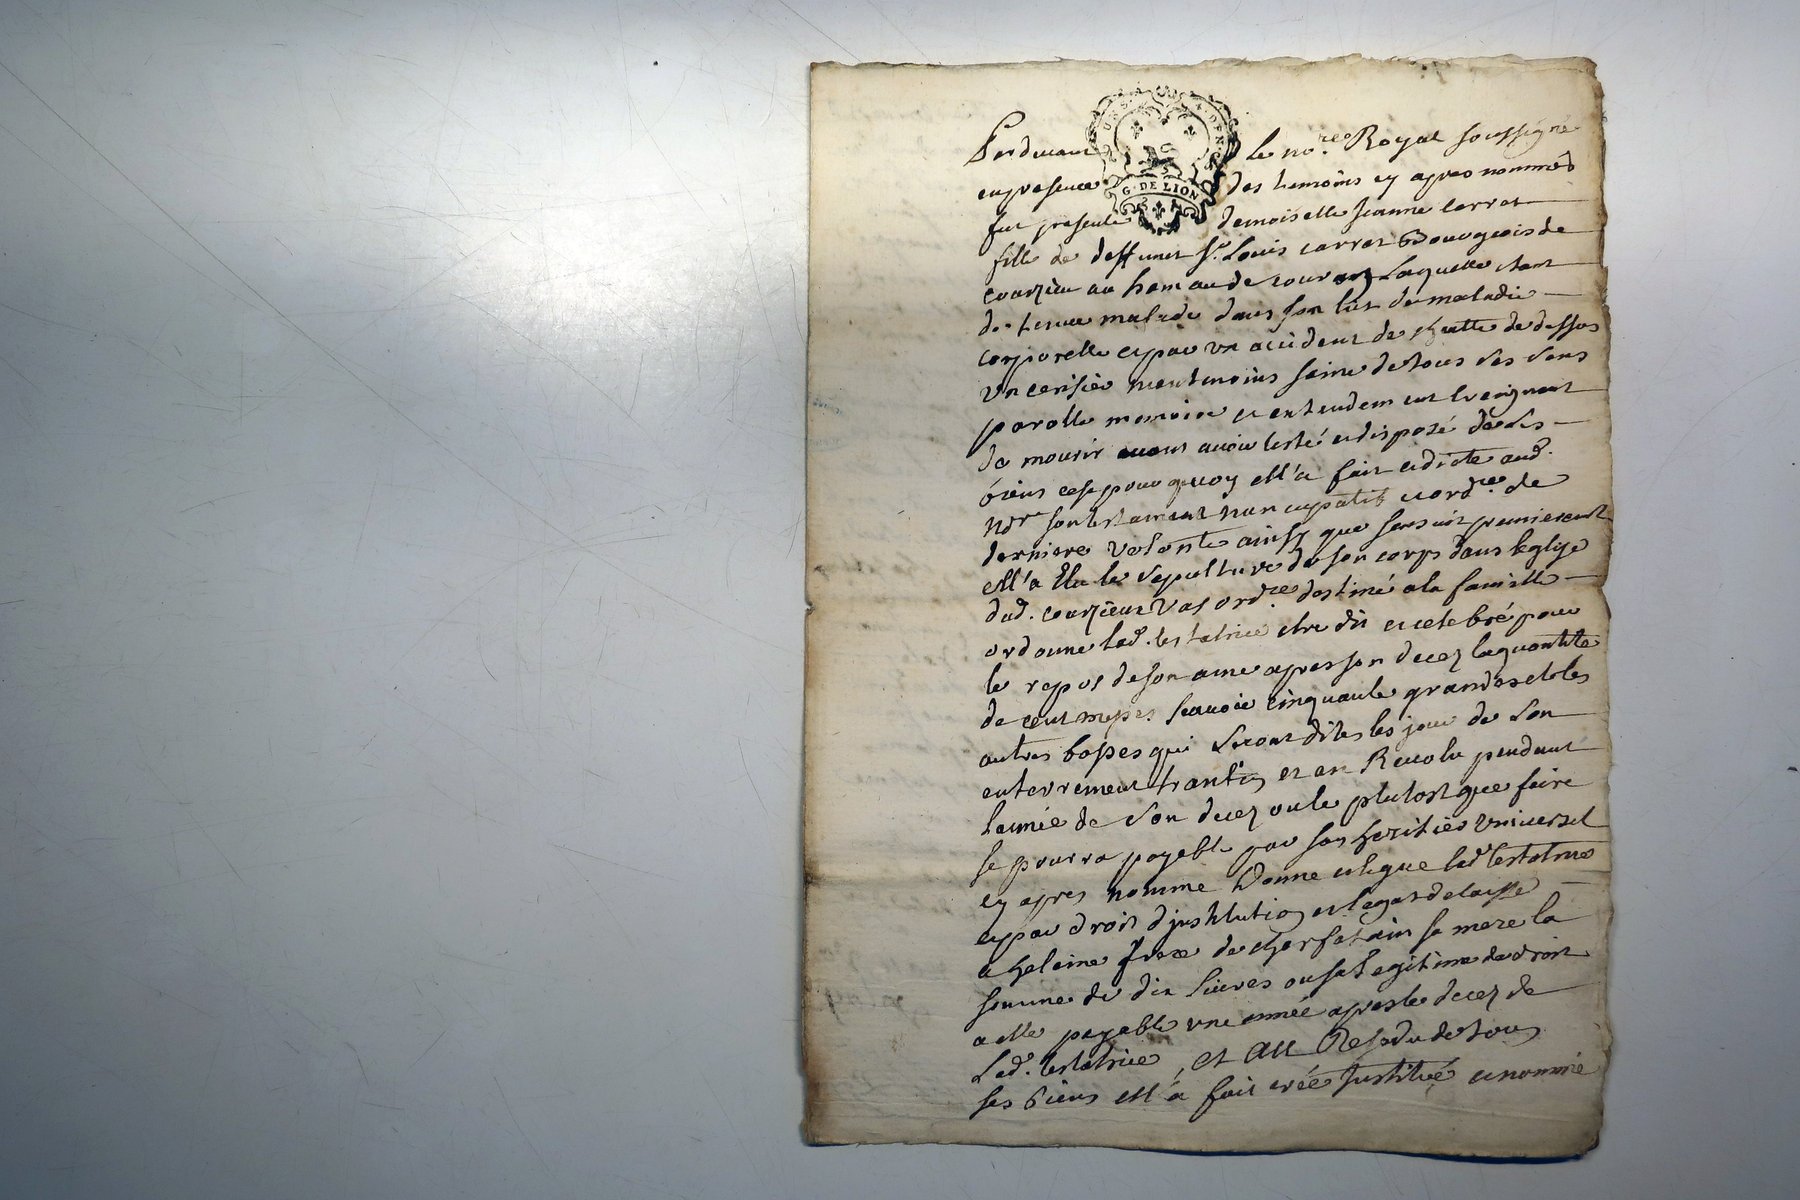 G. DE LION
Pardevant le no.re Royal soussigné
en presence des temoins cy apres nommés
fut presente demoiselle Jeanne Carret
fille de deffunt Sr. Louis Carret Bourgeois de
Courzieu au hameau de laquelle etant
detenue malade dans son lict de maladie
corporelle et par un accident de chutte de dessus
un cerisier neantmoins saine de tous ses sens
parolle memoire et entendement Craignant
de mourir avant avoir testé et disposé de ses
biens cest pourquoy ell'a fait et dicté aud.
no.re son testament nuncupatif et ord.re de
derniere volonte ainsy que sensuit premierement
ell'a Elu la sepulture de son corps dans leglise
dud. Courzieu Vas ord.re destiné a la famille
ordonne lad. testatrice etre dit et celebré pour
le repos de son ame apres son decez la quantite
de cent messes scavoir cinquante grandes et les
autres basses qui seront dites les jour de son
enterrement trantin et an Revolu pendant
lannée de son decez ou le plutost que faire
se pourra payable par son heritier universel
cy apres nommé Donne et legue lad. testatrice
et par droit d'institution et legat delaisse
a helaine de sa mere la
somme de dix livres ou sa legitime de droit
a elle payable une année apres le decez de
lad. testatrice, et au Residu de tous
ses biens ell'a fait créé Institué et nommé